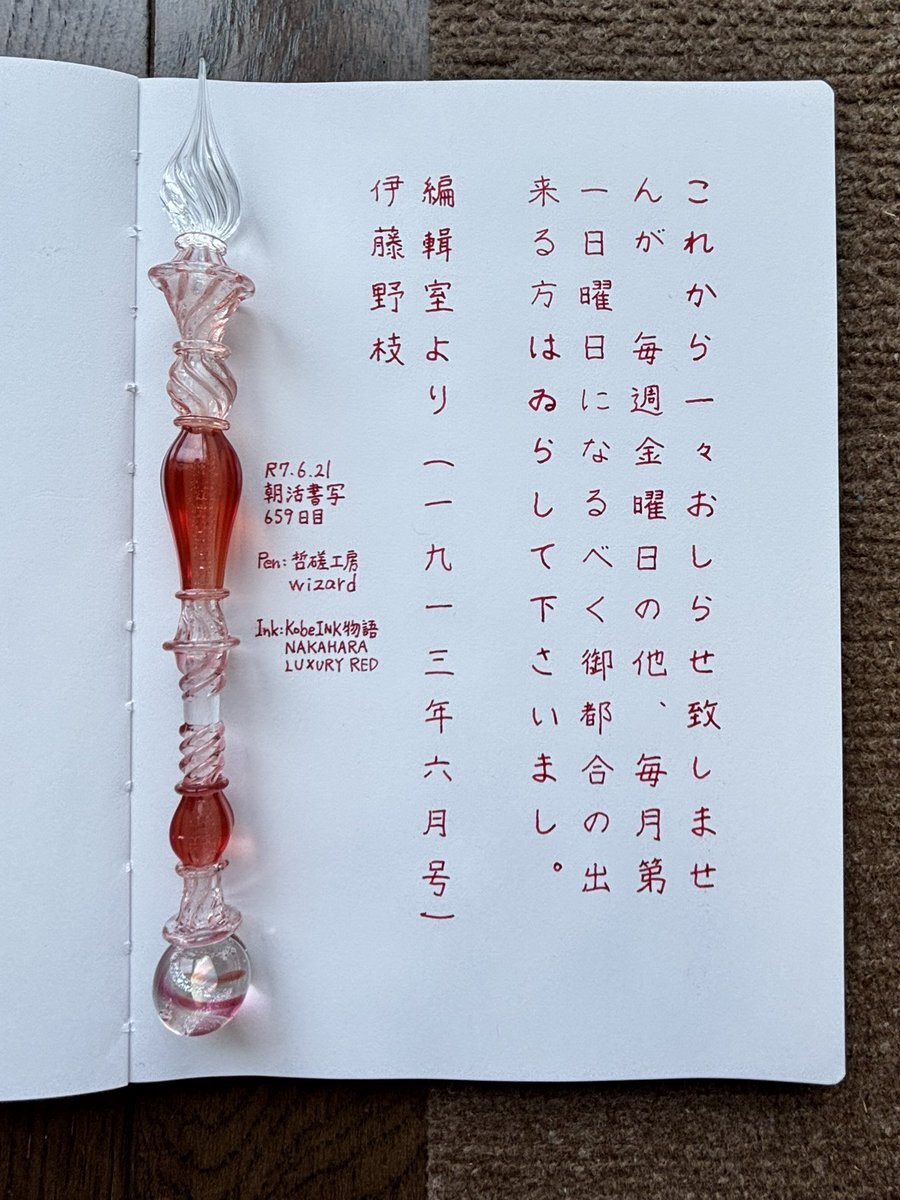 これから一々おしらせ致しませ
んが　毎週金曜日の他、毎月第
一日曜日になるべく御都合の出
来る方はゐらして下さいまし。
編輯室より（一九一三年六月号）
伊藤野枝
R7.6.21
朝活書写
659日目
Pen:哲磋工房
wizard
Ink:KobeINK物語
NAKAHARA
LUXURY RED